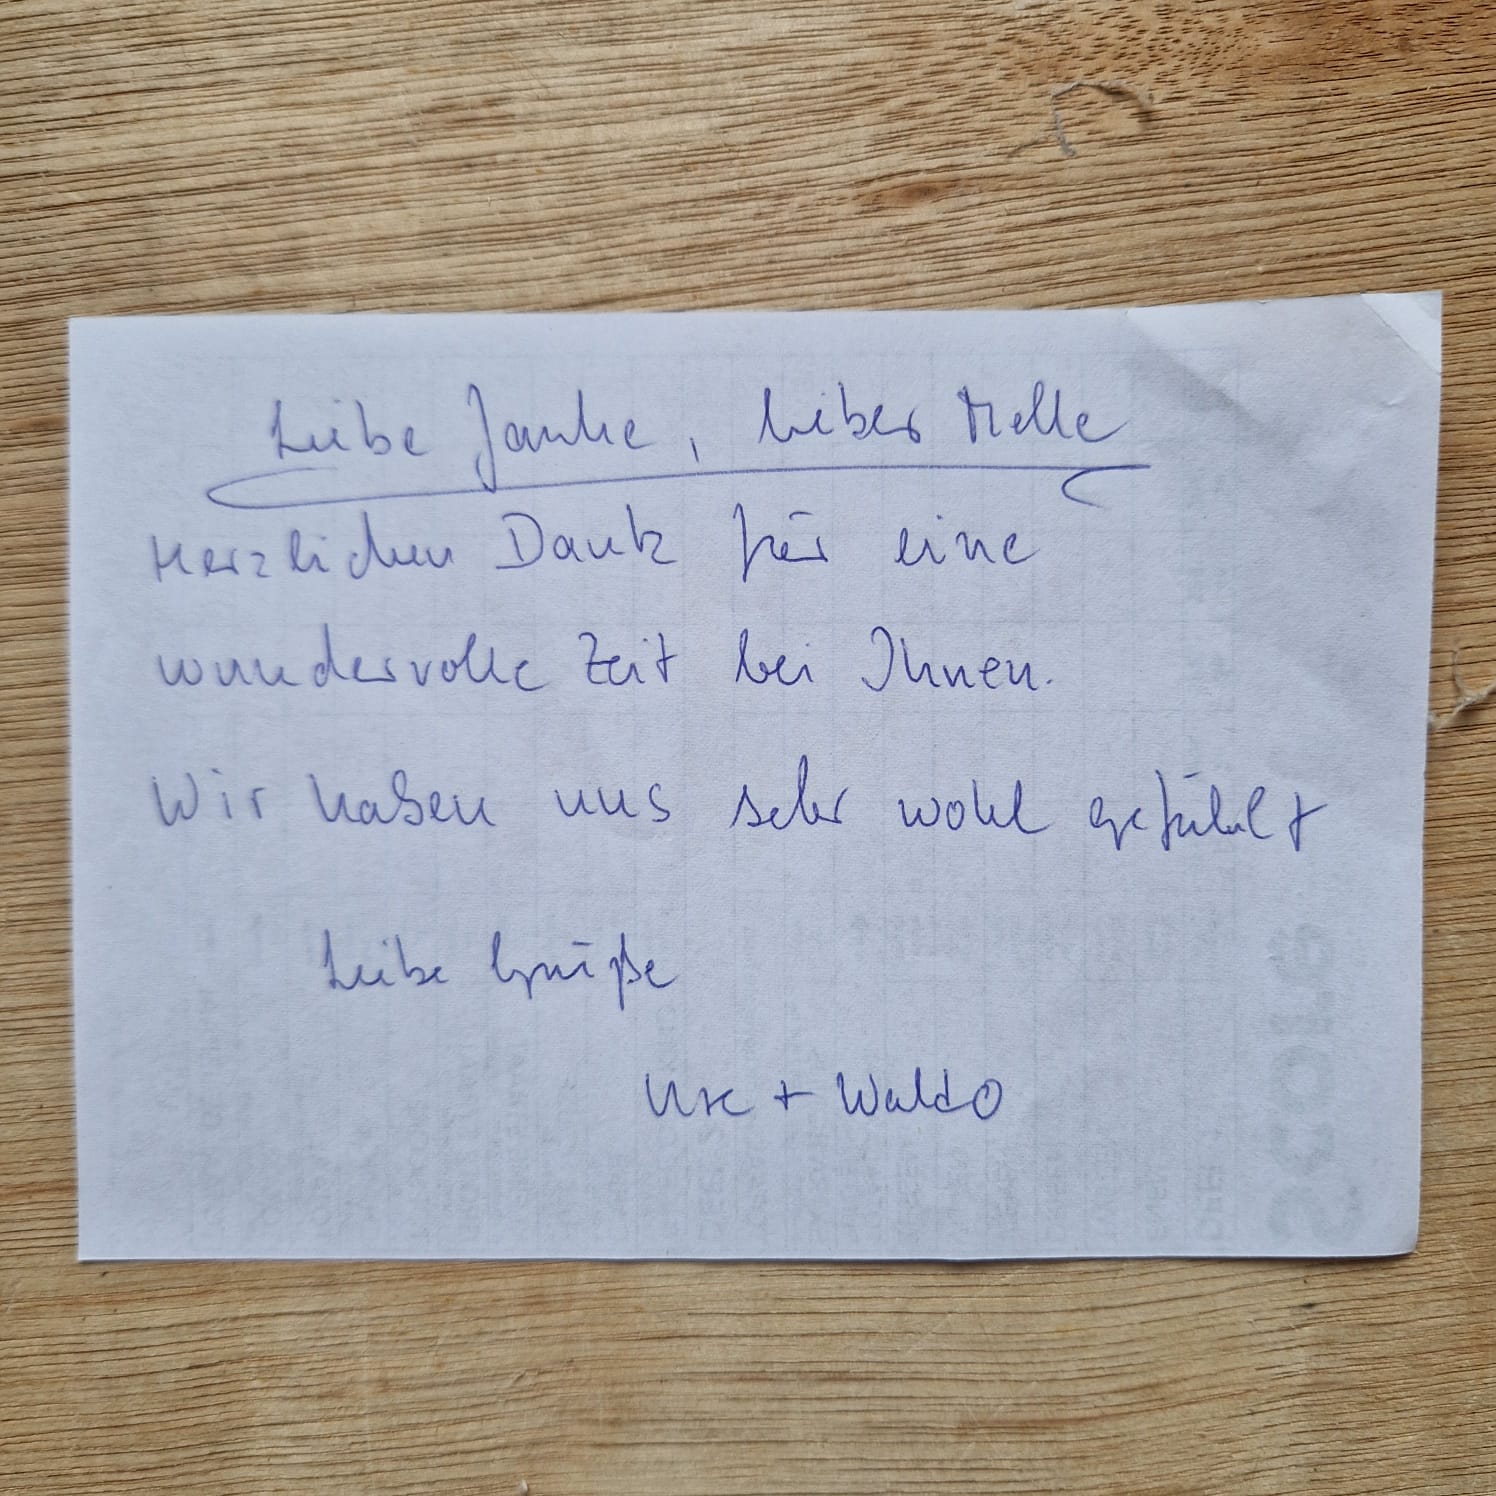 Liebe Janke, lieber Melle
Herzlichen Dank für eine
wundervolle Zeit bei Ihnen.
Wir haben uns sehr wohl gefühlt
Liebe Grüße
+ Waldo